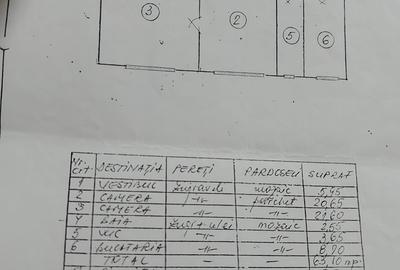 3 2 5 6
Nr. crt. DESTINAȚIA PEREȚI PARDOSELI SUPRAF
1 VESTIBUL zugrăvit mozaic 5,45
2 CAMERA -"- parchet 20,65
3 CAMERA -"- -"- 21,60
4 BAIA zug + ulei mozaic 2,55
5 WC -"- -"- 3,65
6 BUCĂTARIA -"- -"- 8,70
TOTAL — — 63,10 mp.